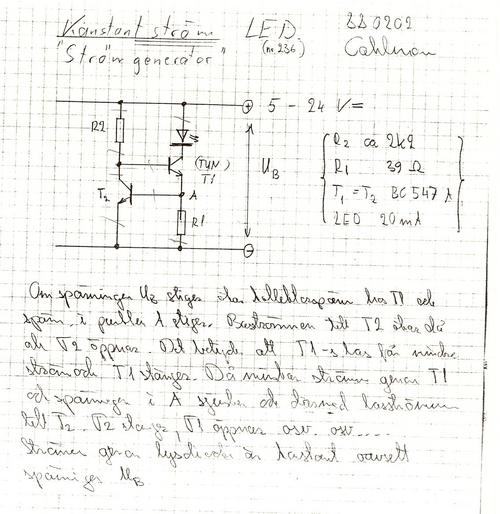 Konstant ström LED. 880202
"Strömgenerator" (nr. 236) Cahlman
+ 5 - 24 V=
R2
(TUN)
T1
UB
T2
A
R1
-
R2 ca 2k2
R1 39 Ω
T1 = T2 BC 547 A
LED 20 mA
Om spänningen UB stiger ökar hos T1 och
spän. i punkten A stiger. Basströmmen till T2 ökar då
och T2 öppnar. Det betyder att T1-s bas får mindre
ström och T1 stänger. Då minskar strömmen genom T1
och spänningen i A sjunker och därmed basströmmen
till T2. T2 stänger, T1 öppnar osv. osv....
Strömmen genom lysdioden är konstant oavsett
spänningen UB